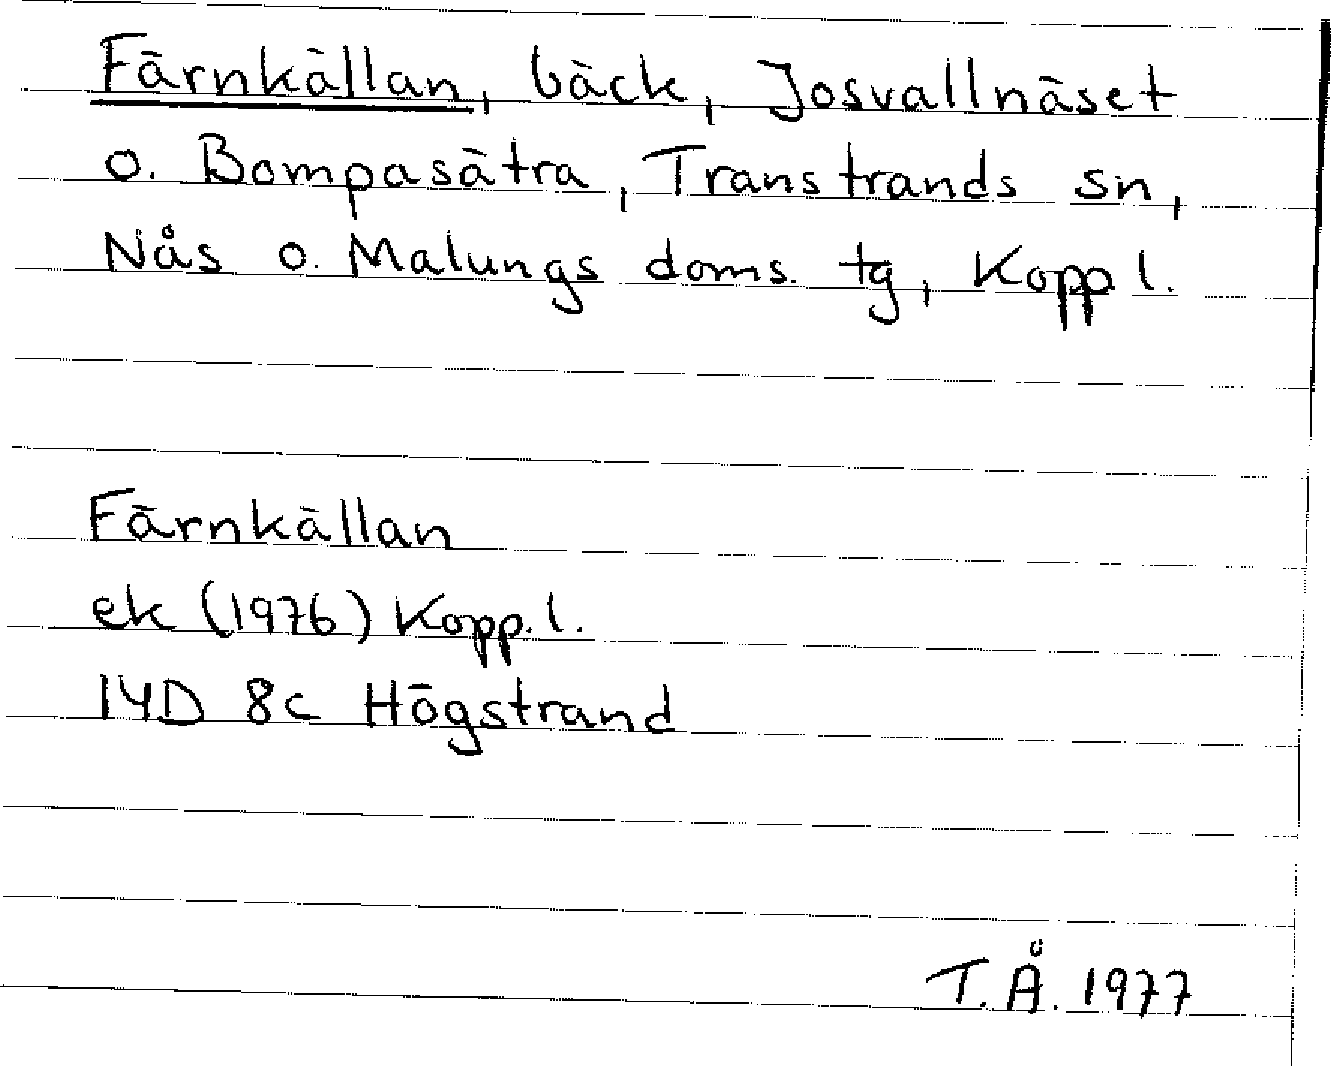 Färnkällan, bäck, Josvallnäset
o. Bompasätra, Transtrands sn,
Nås o. Malungs doms. tg, Kopp. l.
Färnkällan
ek (1976) Kopp. l.
14D 8c Högstrand
T.Å. 1977